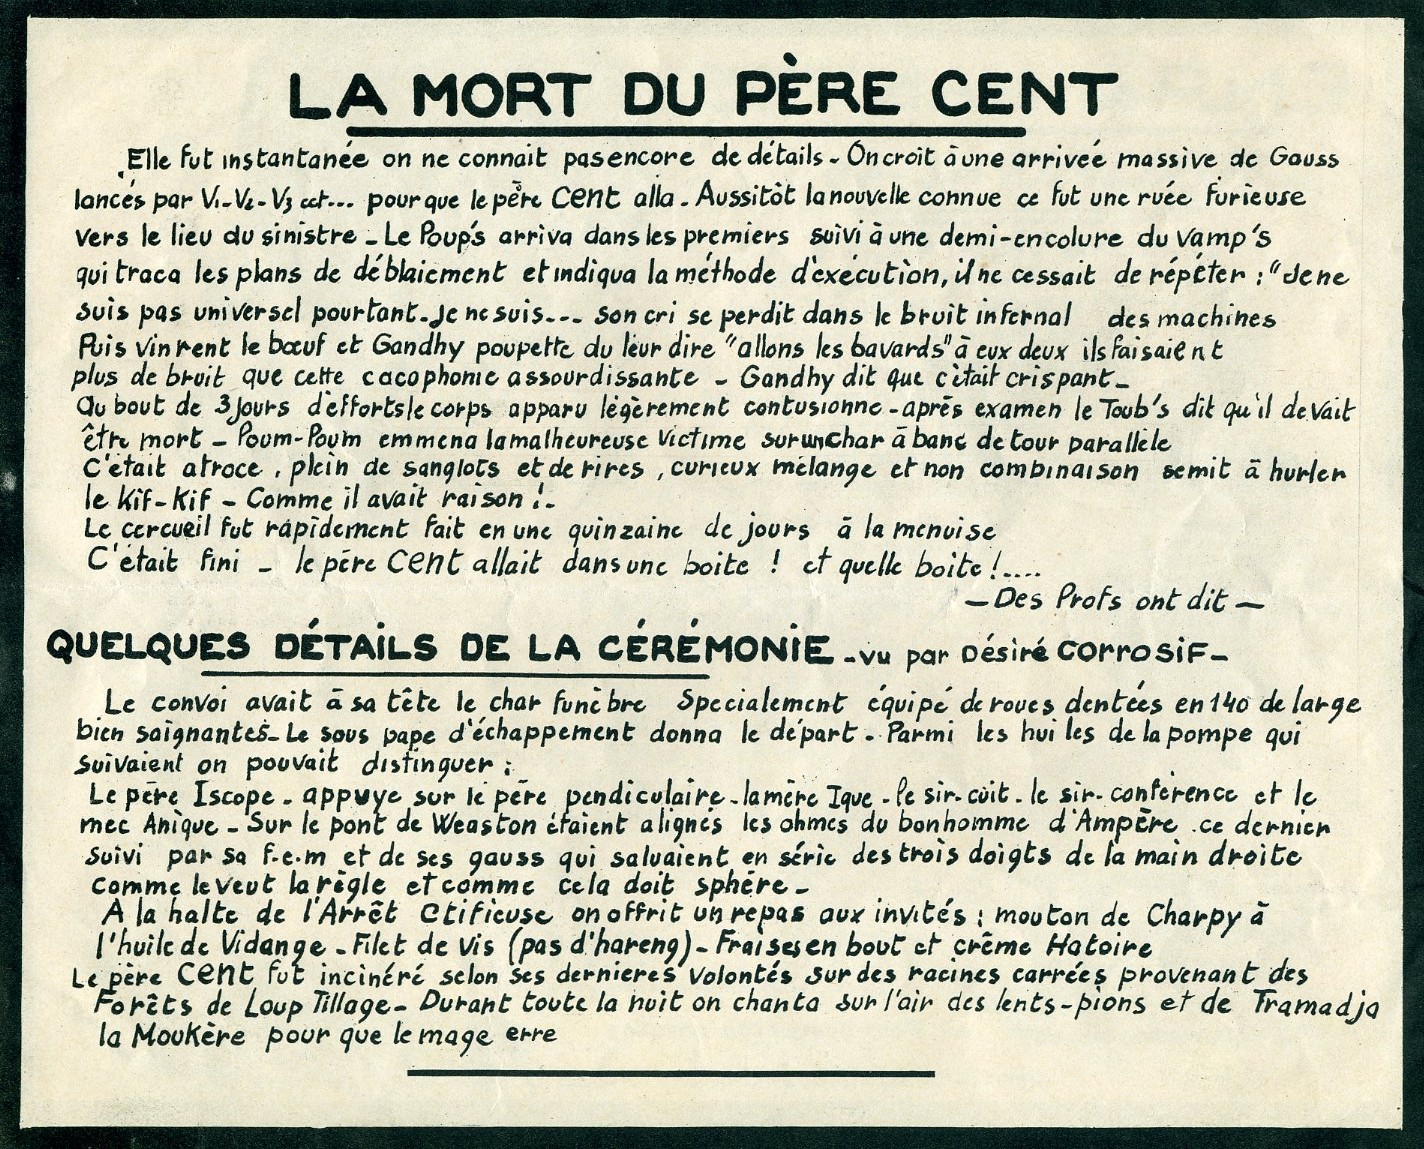 LA MORT DU PÈRE CENT
Elle fut instantanée on ne connait pas encore de détails - On croit à une arriveé massive de Gauss
lancés par V1-V2-V3 ect... pour que le père CENT alla. Aussitôt la nouvelle connue ce fut une ruée furieuse
vers le lieu du sinistre - Le Poup's arriva dans les premiers suivi à une demi-encolure du Vamp's
qui traca les plans de déblaiement et indiqua la méthode d'exécution, il ne cessait de répéter : "Je ne
suis pas universel pourtant. Je ne suis... son cri se perdit dans le bruit infernal des machines
Puis vinrent le bœuf et Gandhy poupette du leur dire "allons les bavards" à eux deux ils faisaient
plus de bruit que cette cacophonie assourdissante - Gandhy dit que c'était crispant -
Au bout de 3 jours d'efforts le corps apparu légèrement contusionne - après examen le Toub's dit qu'il devait
être mort - Poum-Poum emmena la malheureuse victime sur un char à banc de tour parallèle
C'était atroce, plein de sanglots et de rires, curieux mélange et non combinaison se mit à hurler
le Kif-Kif - Comme il avait raison !-
Le cercueil fut rapidement fait en une quinzaine de jours à la menuise
C'était fini - le père CENT allait dans une boite ! et quelle boite !....
- Des Profs ont dit -
QUELQUES DÉTAILS DE LA CÉRÉMONIE - vu par Désiré CORROSIF -
Le convoi avait à sa tête le char funèbre Specialement équipé de roues dentées en 140 de large
bien saignantes - Le sous pape d'échappement donna le départ. Parmi les huiles de la pompe qui
suivaient on pouvait distinguer :
Le père Iscope - appuye sur le père pendiculaire - la mère Ique - le sir-cuit - le sir-conférence et le
mec Anique - Sur le pont de Weaston étaient alignés les ohmes du bonhomme d'Ampère ce dernier
suivi par sa f.e.m et de ses gauss qui saluaient en série des trois doigts de la main droite
comme le veut la règle et comme cela doit sphère -
A la halte de l'Arrêt Ctificuse on offrit un repas aux invités : mouton de Charpy à
l'huile de Vidange - Filet de vis (pas d'hareng) - Fraises en bout et crême Hatoire
Le père CENT fut incinéré selon ses dernieres volontés sur des racines carrées provenant des
Forêts de Loup Tillage - Durant toute la nuit on chanta sur l'air des lents-pions et de Tramadja
la Moukère pour que le mage erre